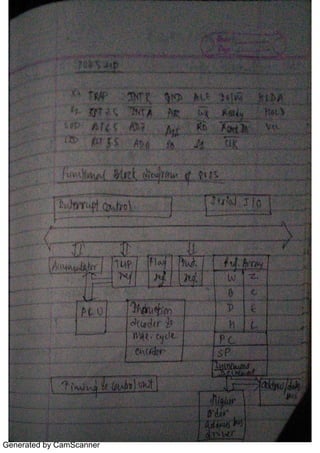 X1 TRAP INTR GND ALE IO/M HLDA
X2 RST 7.5 INTA A8 WR Ready HOLD
SOD RST 6.5 AD7 A15 RD Reset IN Vcc
SID RST 5.5 AD0 S0 S1 CLK
functional block diagram of 8085
Interrupt control
Serial I/O
Accumulator
TMP reg
Flag reg
Inst. reg
Reg. Array
W Z
B C
D E
H L
PC
SP
Increment
Decrement
ALU
Instruction
decoder &
m/c. cycle
encoder
Timing & control unit
address/data
bus
Higher
order
address bus
driver
Generated by CamScanner